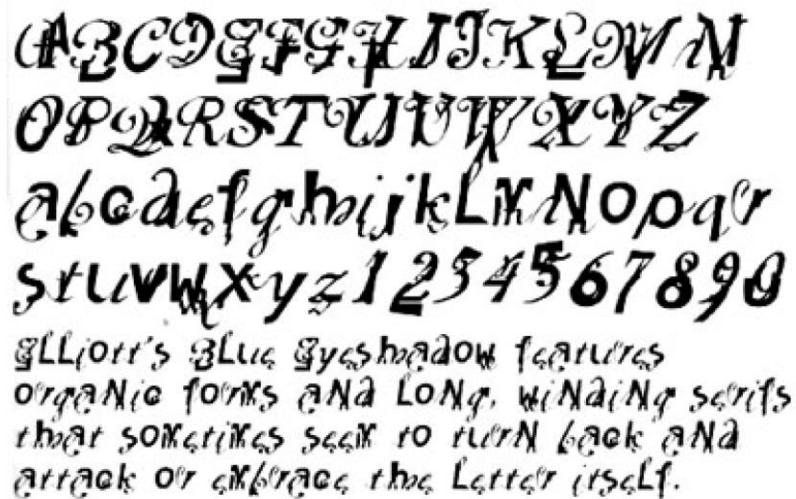 ABCDEFGHIJKLMN
OPQRSTUVWXYZ
abcdefghijkLmNopqr
stuvwxyz1234567890
Elliott's Blue Eyeshadow features
organic forms and long, winding serifs
that sometimes seem to turn back and
attack or embrace the letter itself.